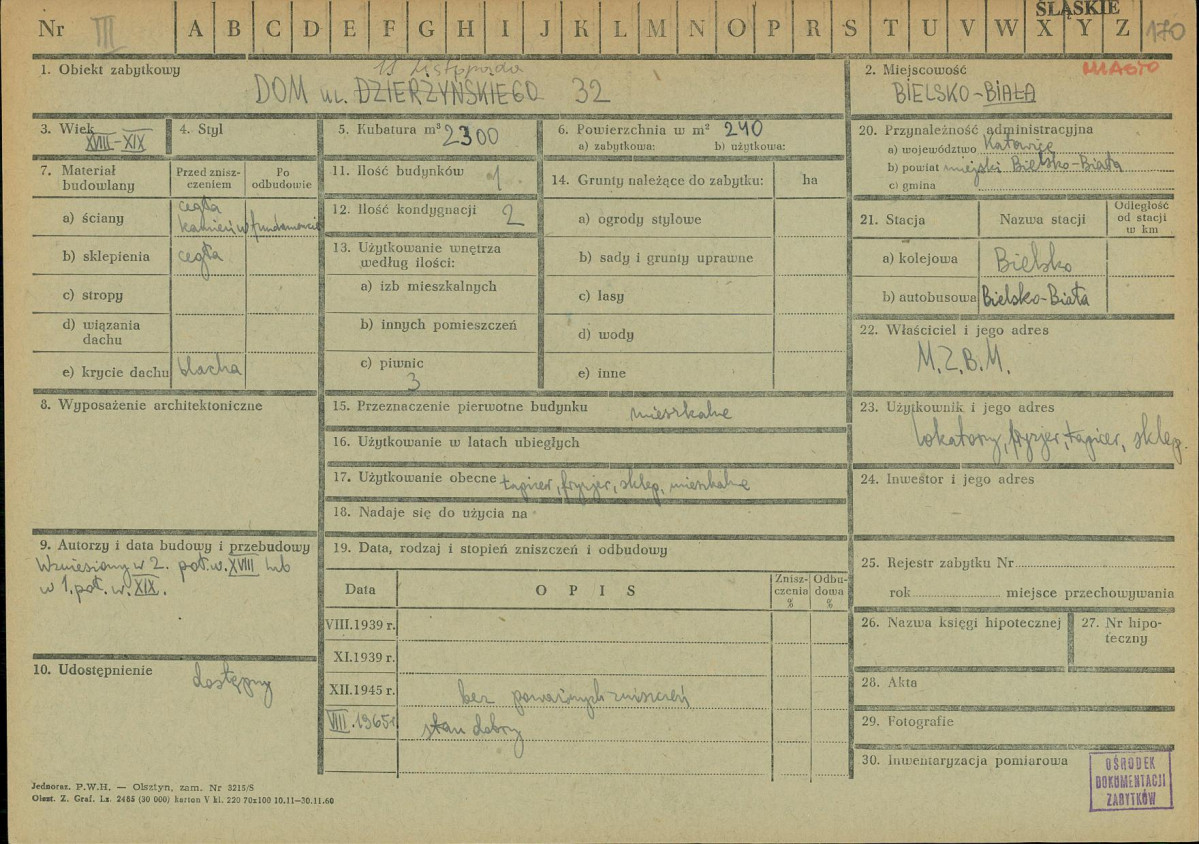 ŚLĄSKIE
Nr III A B C D E F G H I J K L Ł M N O P R S T U V W X Y Z 170
1. Obiekt zabytkowy
11 Listopada
DOM ul. DZIERŻYŃSKIEGO 32
2. Miejscowość MIASTO
BIELSKO-BIAŁA
3. Wiek
XVIII-XIX
4. Styl
5. Kubatura m³ 2300
6. Powierzchnia w m² 240
a) zabytkowa: b) użytkowa:
7. Materiał budowlany
Przed zniszczeniem
Po odbudowie
a) ściany cegła
kamień w fundamencie
b) sklepienia cegła
c) stropy
d) wiązania
dachu
e) krycie dachu blacha
8. Wyposażenie architektoniczne
9. Autorzy i data budowy i przebudowy
Wzniesiony w 2. poł. w. XVIII lub
w 1. poł. w. XIX.
10. Udostępnienie dostępny
11. Ilość budynków 1
12. Ilość kondygnacji 2
13. Użytkowanie wnętrza
według ilości:
a) izb mieszkalnych
b) innych pomieszczeń
c) piwnic
3
14. Grunty należące do zabytku: ha
a) ogrody stylowe
b) sady i grunty uprawne
c) lasy
d) wody
e) inne
15. Przeznaczenie pierwotne budynku mieszkalne
16. Użytkowanie w latach ubiegłych
17. Użytkowanie obecne tapicer, fryzjer, sklep, mieszkalne
18. Nadaje się do użycia na
19. Data, rodzaj i stopień zniszczeń i odbudowy
Data OPIS Zniszczenia % Odbudowa %
VIII.1939 r.
XI.1939 r.
XII.1945 r. bez poważnych zniszczeń
VIII.1965r stan dobry
20. Przynależność administracyjna
a) województwo Katowice
b) powiat miejski Bielsko-Biała
c) gmina
21. Stacja Nazwa stacji Odległość od stacji w km
a) kolejowa Bielsko
b) autobusowa Bielsko-Biała
22. Właściciel i jego adres
M.Z.B.M.
23. Użytkownik i jego adres
lokatorzy, fryzjer, tapicer, sklep.
24. Inwestor i jego adres
25. Rejestr zabytku Nr
rok miejsce przechowywania
26. Nazwa księgi hipotecznej
27. Nr hipoteczny
28. Akta
29. Fotografie
30. Inwentaryzacja pomiarowa
OŚRODEK
DOKUMENTACJI
ZABYTKÓW
Jednoraz. P.W.H. — Olsztyn, zam. Nr 3215/S
Olszt. Z. Graf. Lz. 2465 (30 000) karton V kl. 220 70x100 10.11—30.11.60